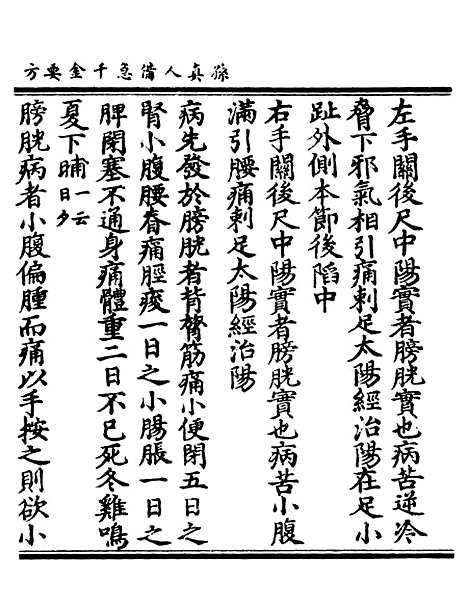 孫真人備急千金要方
左手關後尺中陽實者膀胱實也病苦逆冷
脅下邪氣相引痛刺足太陽經治陽在足小
趾外側本節後陷中
右手關後尺中陽實者膀胱實也病苦小腹
滿引腰痛刺足太陽經治陽
病先發於膀胱者背膂筋痛小便閉五日之
腎小腹腰脊痛脛痠一日之小腸脹一日之
脾閉塞不通身痛體重二日不已死冬雞鳴
夏下晡一云日夕
膀胱病者小腹偏腫而痛以手按之則欲小